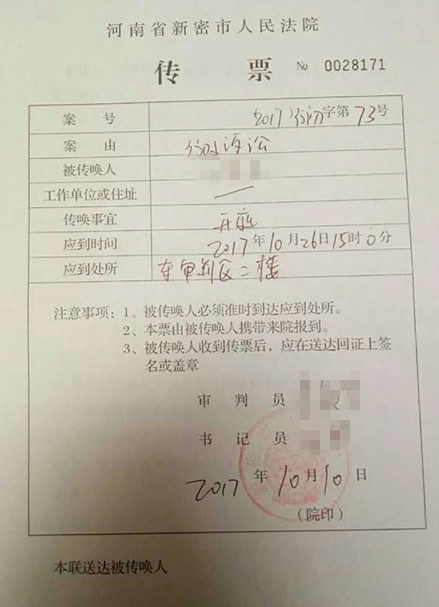 河南省新密市人民法院
传 票 № 0028171
案 号 2017 初字第73号
案 由 诉讼
被传唤人
工作单位或住址 —
传唤事宜 开庭
应到时间 2017年10月26日15时0分
应到处所 二楼
注意事项：1、被传唤人必须准时到达应到处所。
2、本票由被传唤人携带来院报到。
3、被传唤人收到传票后，应在送达回证上签
名或盖章
审 判 员
书 记 员
2017 年 10月10日
（院印）
本联送达被传唤人